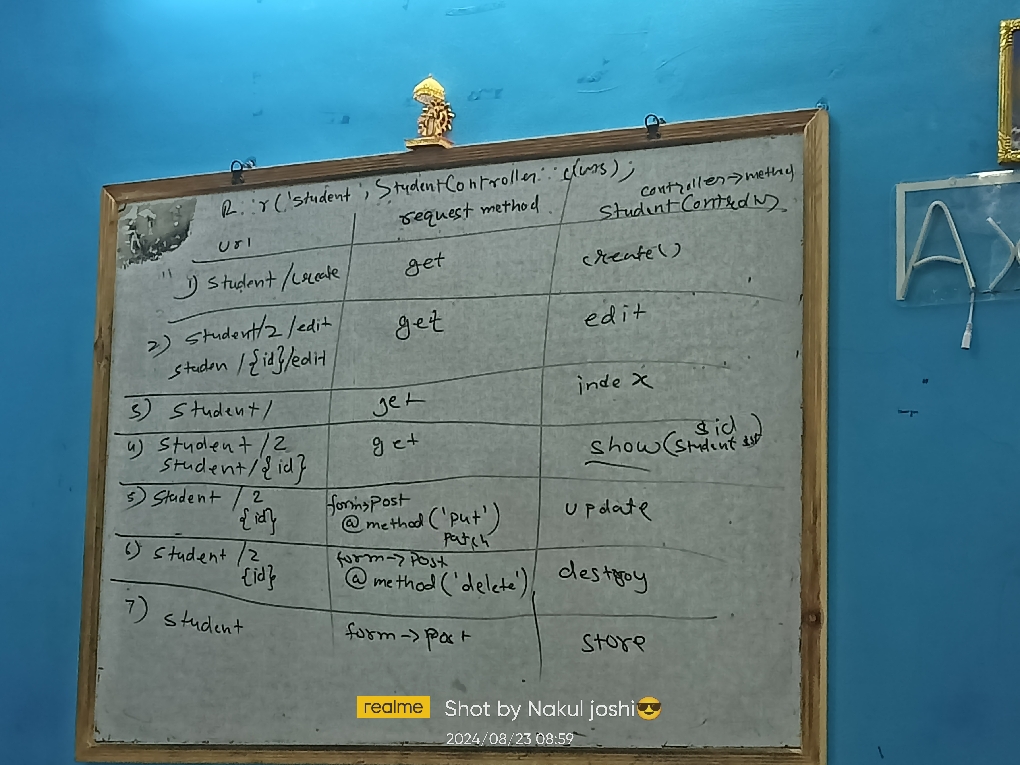 R::r('student', StudentController::class);
uri
request method
controller→method
1) student/create
get
create()
2) student/2/edit
studen/{id}/edit
get
edit
3) student/
get
index
4) student/2
student/{id}
get
$id
show(student
5) student/2
{id}
form→post
@method('put')
patch
update
6) student/2
{id}
form→post
@method('delete')
destroy
7) student
form→post
store
AX
realme
Shot by Nakul joshi😎
2024/08/23 08:59